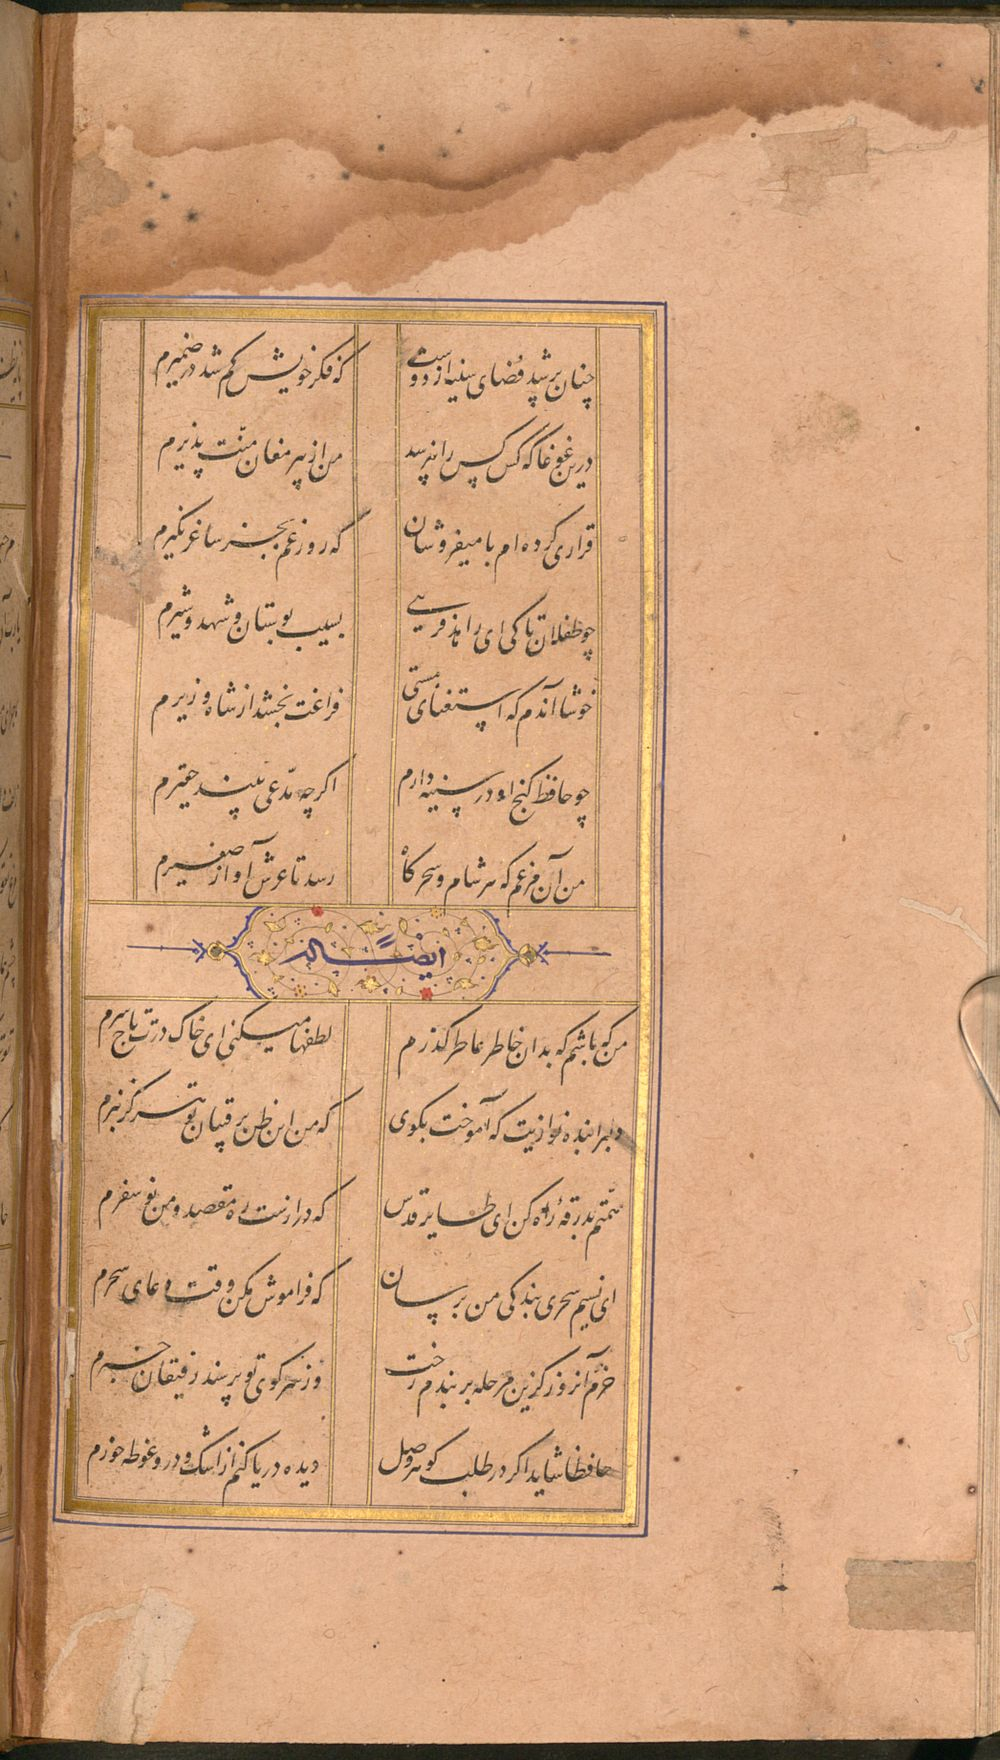 چنان پر شد فضای سینه از دوست که فکر خویش کم شد در ضمیرم
درین غوغا که کس کس را نپرسد من از پیر مغان منت پذیرم
قراری کرده ام با میفروشان که روز غم بجز ساغر نکیرم
چو طفلان تا کی ای زاهد فریبی بسیب بوستان و شهد و شیرم
خوشا آندم که استغنای مستی فراغت بخشد از شاه و زیرم
چو حافظ کنج او در سینه دارم اکرچه مدعی بیند حقیرم
من آن مرغم که هر شام و سحرکاه رسد تا عرش آواز صفیرم
ایضاله
من که باشم که بدان خاطر عاطر کذرم لطفها میکنی ای خاک درت تاج سرم
دلبرا بنده نوازیت که آموخت بکوی که من این ظن برقیبان تو هرکز نبرم
همتم بدرقهٔ راه کن ای طایر قدس که درازست ره مقصد و من نو سفرم
ای نسیم سحری بندکی من برسان که فراموش مکن وقت دعای سحرم
خرم آنروز کزین مرحله بربندم رخت وز سر کوی تو پرسند رفیقان خبرم
حافظا شاید اکر در طلب کوهر وصل دیده دریا کنم از اشک و درو غوطه خورم